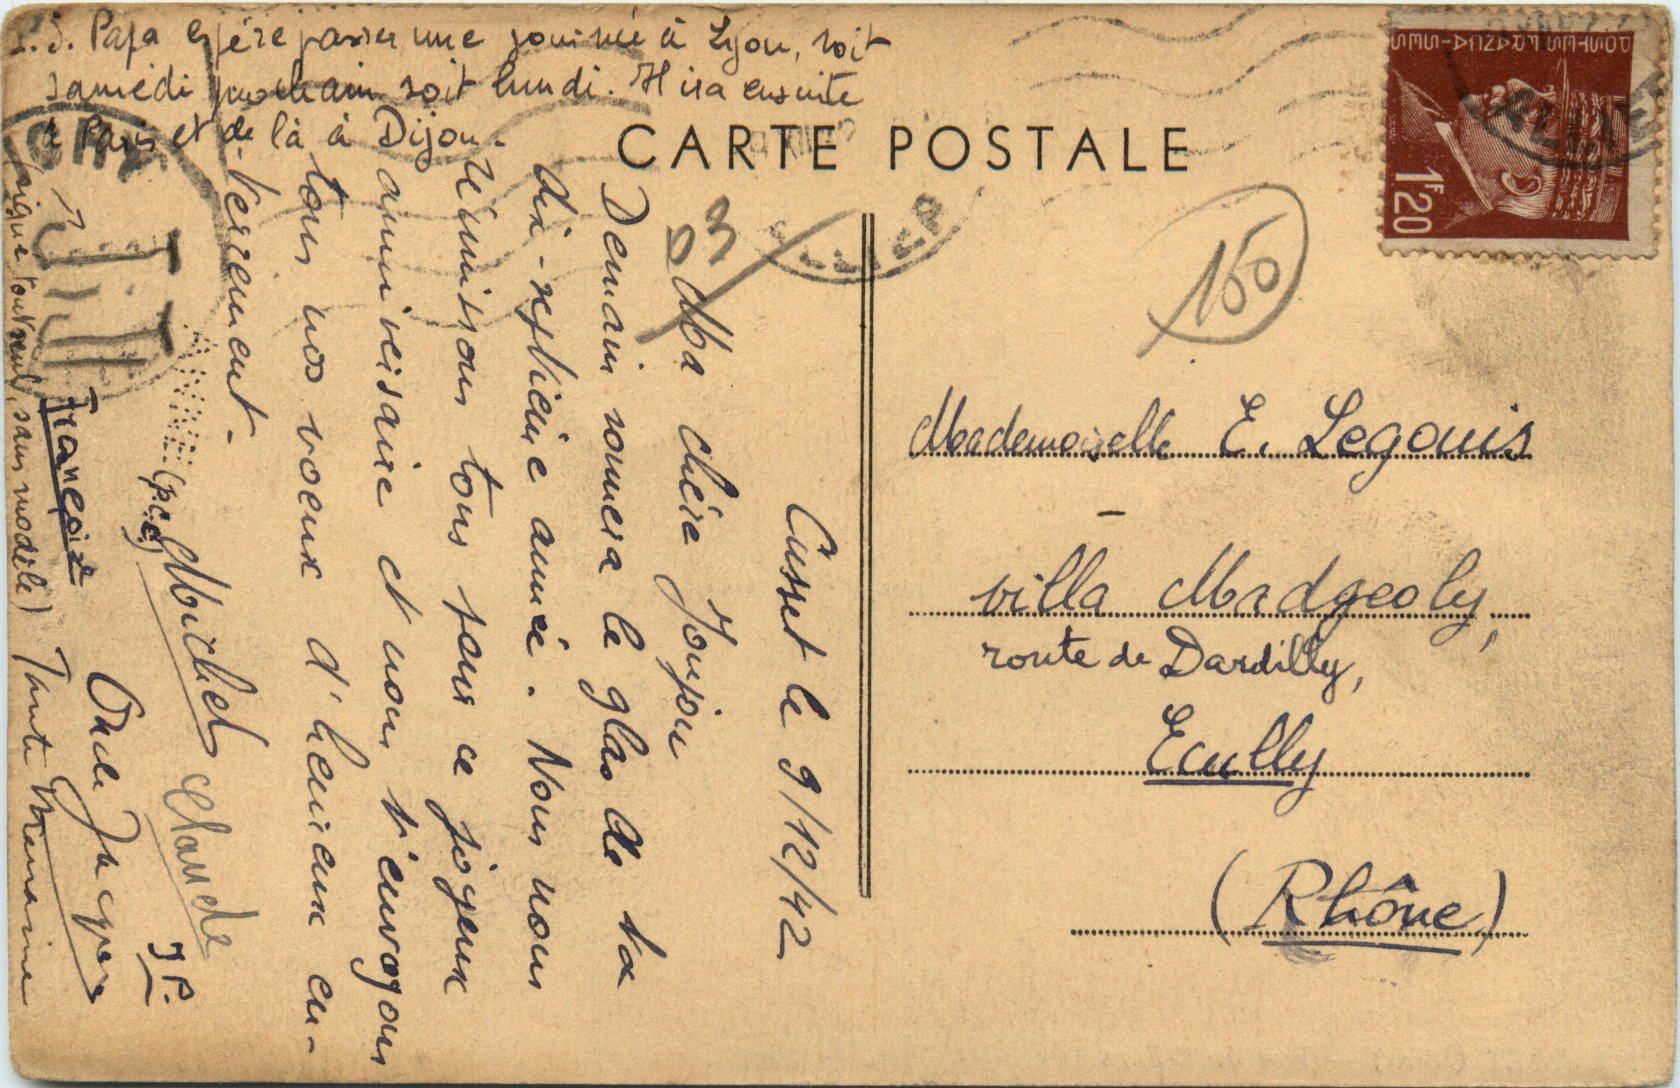 P.S. Papa espère passer une journée à Lyon, soit
samedi prochain soit lundi. Il ira ensuite
à Paris et de là à Dijon.
CARTE POSTALE
POSTES FRANÇAISES
1F20
ALLIER
03
150
Cusset le 9/12/42
Ma chère Joujou
Demain sonnera le glas de ta
dix-septième année. Nous nous
réunissons tous pour ce joyeux
anniversaire et nous t'envoyons
tous nos voeux d'heureux en-
-terrement.
(pcc) Michel Claude JP.
François Oncle Jacques
(signé tout seul, sans modèle) Tante Germaine
Mademoiselle E. Legouis
villa Madgeoly,
route de Dardilly,
Ecully
(Rhône)